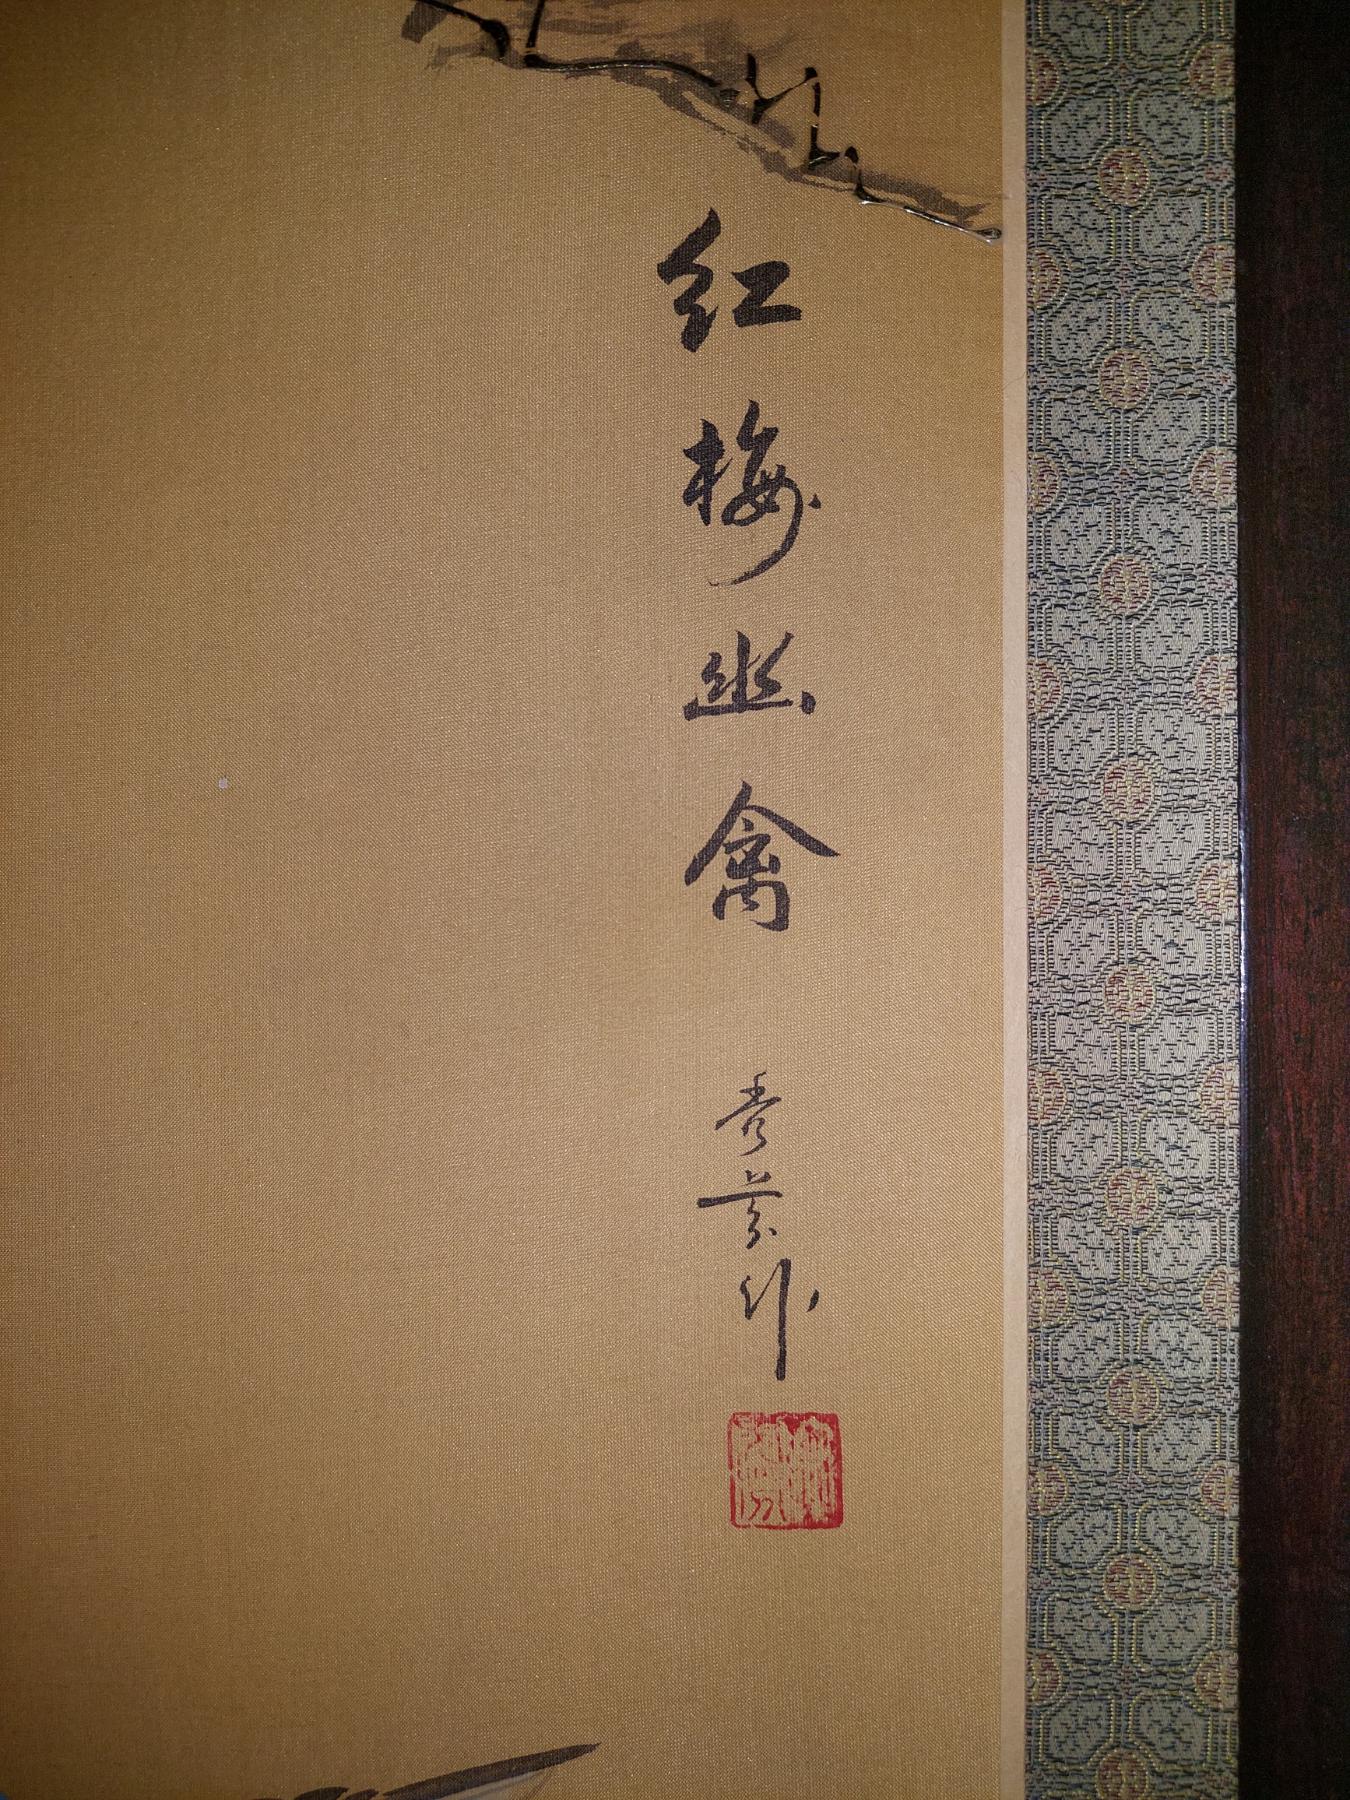 红梅幽禽
秀芸作